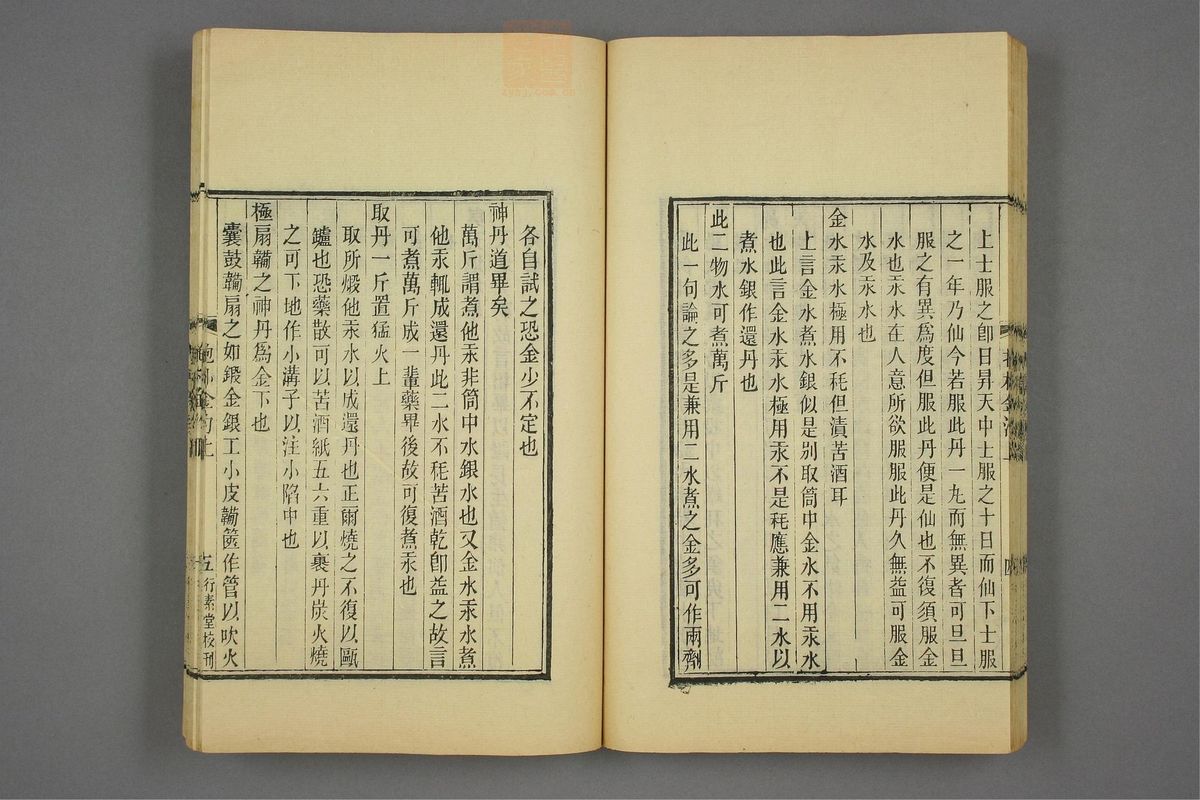 上士服之卽日昇天中士服之十日而仙下士服
之一年乃仙今若服此丹一丸而無異者可旦旦
服之有異爲度但服此丹便是仙也不復須服金
水也汞水在人意所欲服服此丹久無益可服金
水及汞水也
金水汞水極用不秏但漬苦酒耳
上言金水煮水銀似是别取筒中金水不用汞水
也此言金水汞水極用汞不是秏應兼用二水以
煮水銀作還丹也
此二物水可煮萬斤
此一句論之多是兼用二水煮之金多可作兩劑
各自試之恐金少不定也
神丹道畢矣
萬斤謂煮他汞非筒中水銀水也又金水汞水煮
他汞輒成還丹此二水不秏苦酒乾卽益之故言
可煮萬斤成一輩藥畢後故可復煮汞也
取丹一斤置猛火上
取所煅他汞水以成還丹也正爾燒之不復以甌
鑪也恐藥散可以苦酒紙五六重以裹丹炭火燒
之可下地作小溝子以注小陷中也
極扇鞴之神丹爲金下也
囊鼓鞴扇之如鍛金銀工小皮鞴篋作管以吹火
五 行素堂校刊